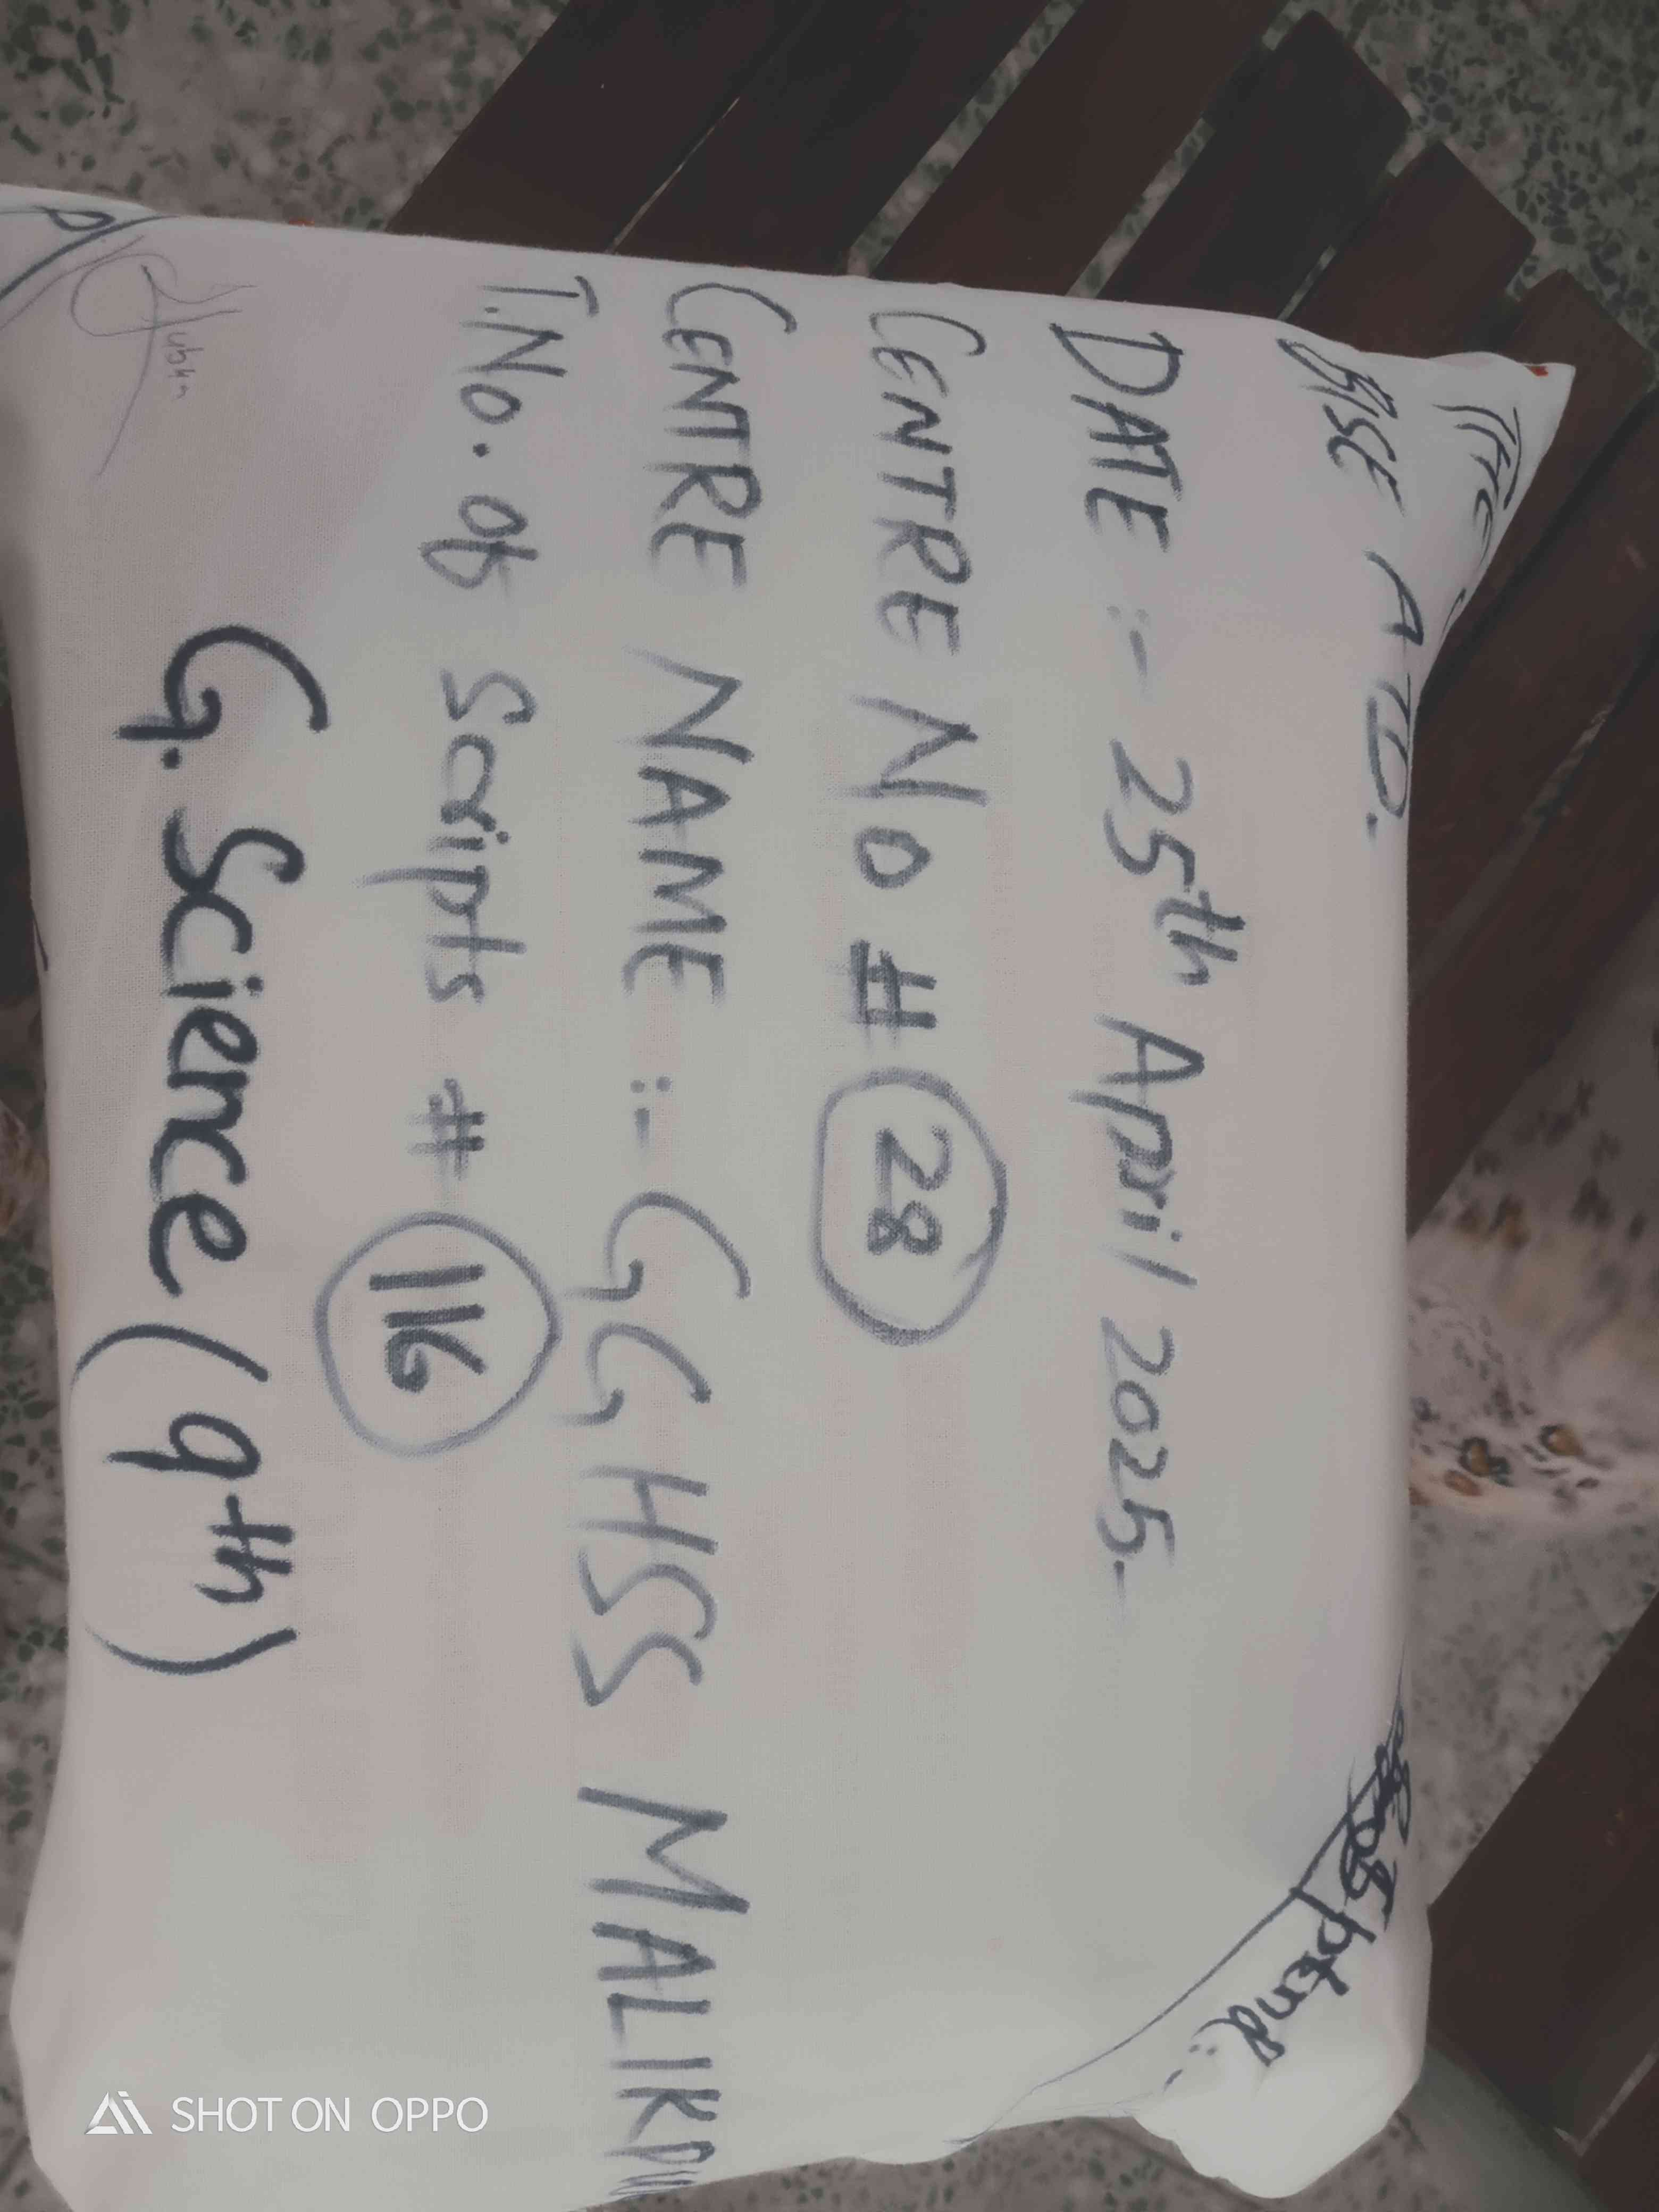 BISE ATD.
DATE :- 25th April 2025.
CENTRE No # 28
CENTRE NAME :- GGHSS MALIKPU
T.No. of Scripts # 116
G. Science (9th)
SHOT ON OPPO